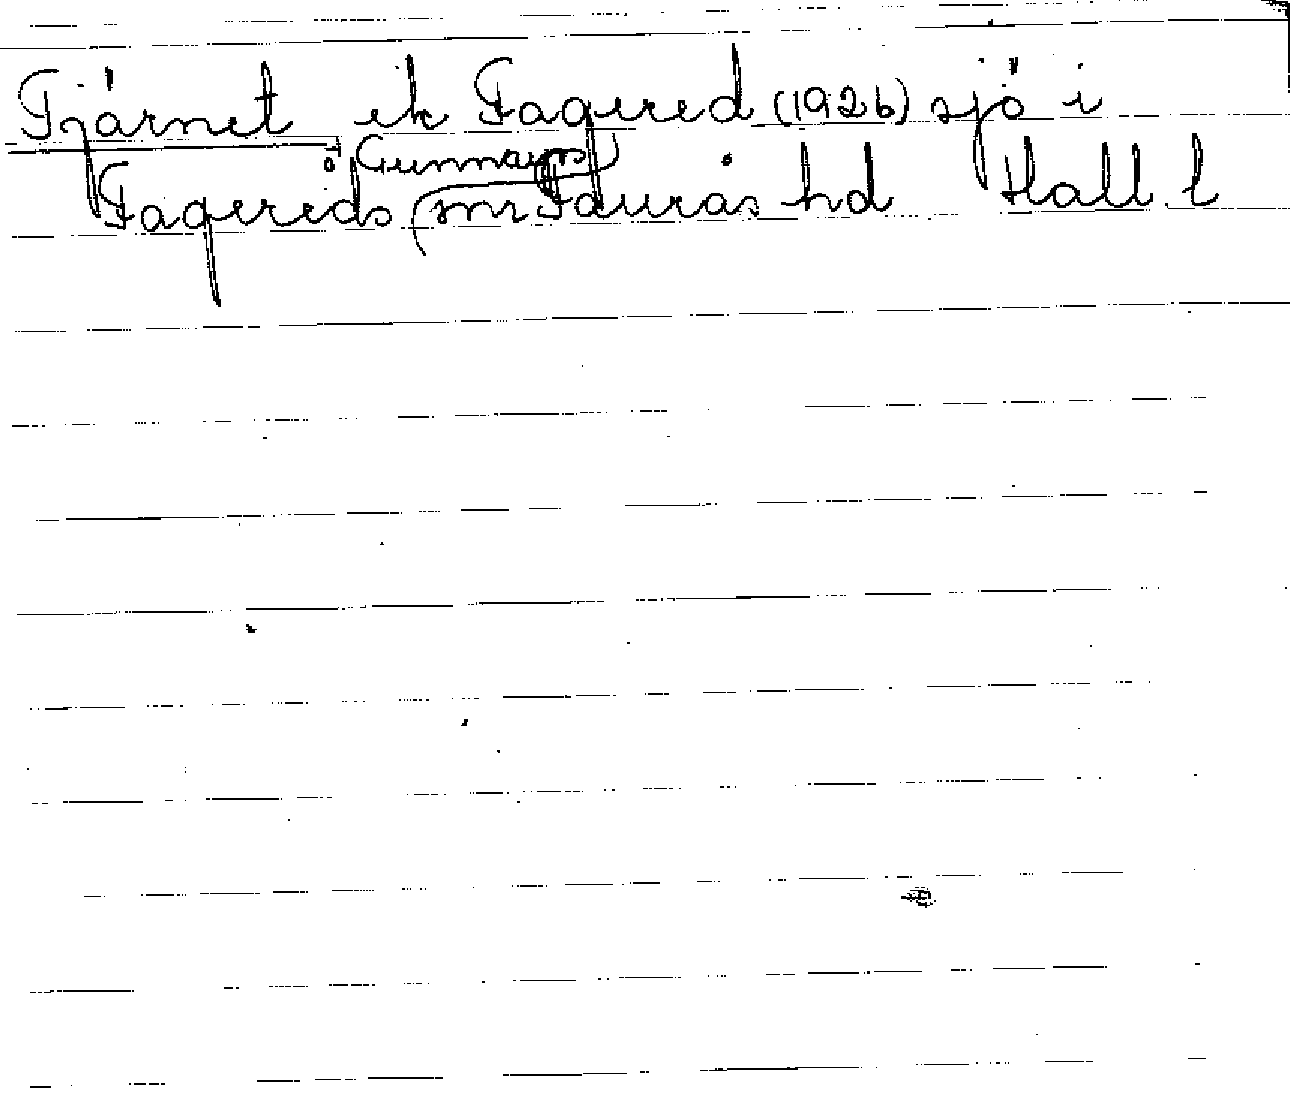 Tjärnet ek Fagered (1926) sjö i
o Gunnarps
Fagereds snr Faurås hd Hall l